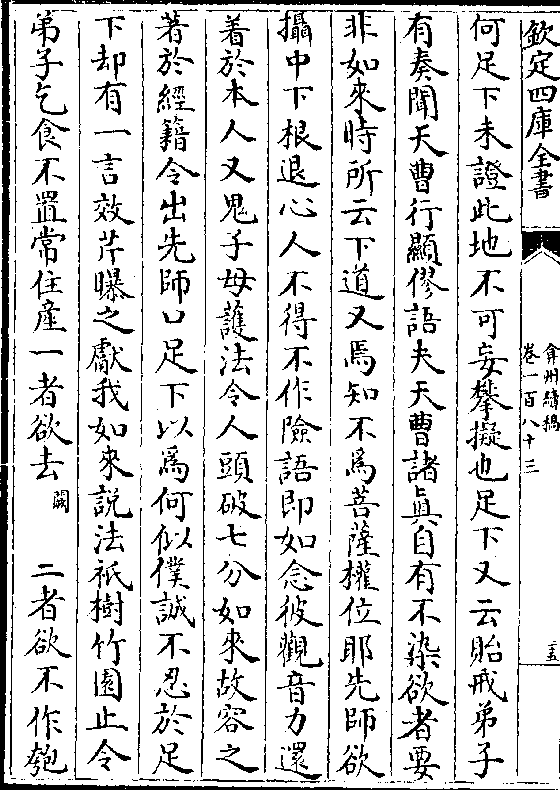 欽定四庫全書
弇州續稿
卷一百八十三
何足下未證此地不可妄攀擬也足下又云貽戒弟子
有奏聞天曹行顯僇語夫天曹諸眞自有不染欲者要
非如來時所云下道又焉知不爲菩薩權位耶先師欲
攝中下根退心人不得不作險語即如念彼觀音力還
着於本人又鬼子母護法令人頭破七分如來故容之
著於經籍令出先師口足下以爲何似僕誠不忍於足
下却有一言效芹曝之獻我如來説法祇樹竹園止令
弟子乞食不置常住産一者欲去闕 二者欲不作匏